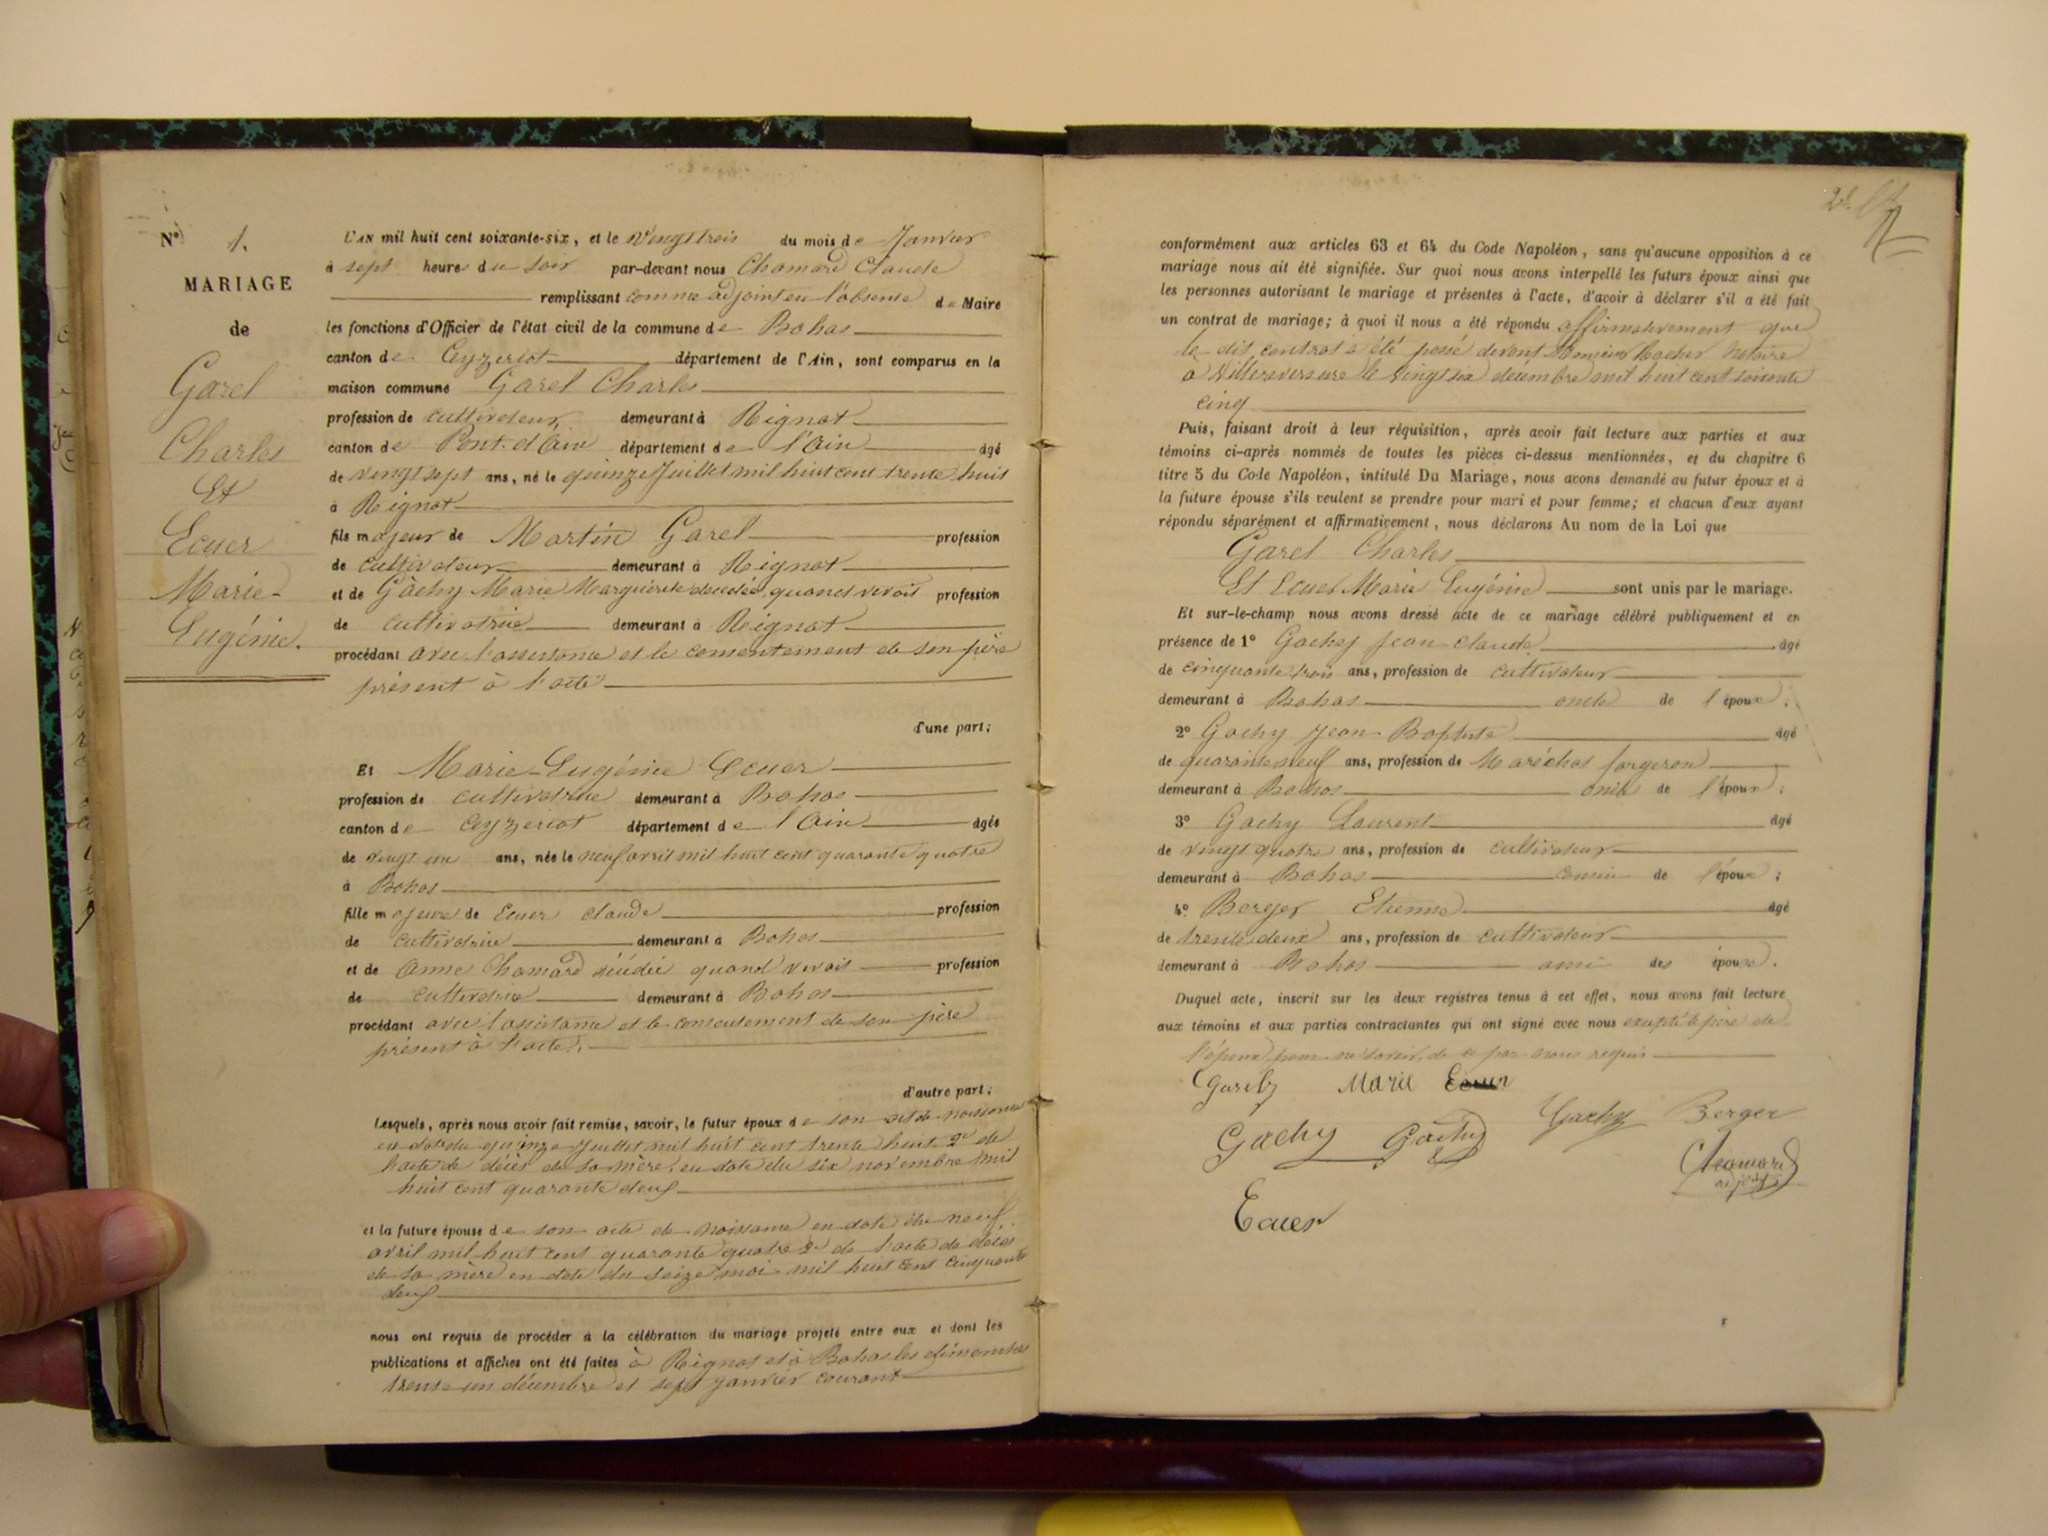 N° 1.
MARIAGE
de
Garel
Charles
Et
Ecuer
Marie
Eugénie.
L'AN mil huit cent soixante-six, et le Vingt trois du mois de Janvier
à sept heures du soir par-devant nous Chamard Claude
remplissant comme adjoint en l'absence de Maire
les fonctions d'Officier de l'état civil de la commune de Bohas
canton de Ceyzeriat département de l'Ain, sont comparus en la
maison commune Garel Charles
profession de cultivateur demeurant à Rignat
canton de Pont-d'Ain département de l'Ain âgé
de vingt sept ans, né le quinze Juillet mil huit cent trente huit
à Rignat
fils majeur de Martin Garel profession
de cultivateur demeurant à Rignat
et de Gâchy Marie Marguérite décédée quand vivait profession
de cultivatrice demeurant à Rignat
procédant avec l'assistance et le consentement de son père
présent à l'acte
d'une part;
Et Marie-Eugénie Ecuer
profession de cultivatrice demeurant à Bohas
canton de Ceyzeriat département de l'Ain âgée
de vingt un ans, née le neuf avril mil huit cent quarante quatre
à Bohas
fille majeure de Ecuer Claude profession
de cultivatrice demeurant à Bohas
et de Anne Chamard décédée quand vivait profession
de cultivatrice demeurant à Bohas
procédant avec l'assistance et le consentement de son père
présent à l'acte.
d'autre part;
Lesquels, après nous avoir fait remise, savoir, le futur époux de son acte de naissance
en date du quinze Juillet mil huit cent trente huit 2° de
l'acte de décès de sa mère, en date du six novembre mil
huit cent quarante deux
et la future épouse de son acte de naissance en date du neuf
avril mil huit cent quarante quatre 2° de l'acte de décès
de sa mère en date du seize mai mil huit cent cinquante
deux
nous ont requis de procéder à la célébration du mariage projeté entre eux et dont les
publications et affiches ont été faites à Rignat et à Bohas les dimanches
trente un décembre et sept janvier courant
conformément aux articles 63 et 64 du Code Napoléon, sans qu'aucune opposition à ce
mariage nous ait été signifiée. Sur quoi nous avons interpellé les futurs époux ainsi que
les personnes autorisant le mariage et présentes à l'acte, d'avoir à déclarer s'il a été fait
un contrat de mariage; à quoi il nous a été répondu affirmativement que
le dit contrat a été passé devant Monsieur notaire
à Villereversure le vingt six décembre mil huit cent soixante
cinq
Puis, faisant droit à leur réquisition, après avoir fait lecture aux parties et aux
témoins ci-après nommés de toutes les pièces ci-dessus mentionnées, et du chapitre 6
titre 5 du Code Napoléon, intitulé Du Mariage, nous avons demandé au futur époux et à
la future épouse s'ils veulent se prendre pour mari et pour femme; et chacun d'eux ayant
répondu séparément et affirmativement, nous déclarons Au nom de la Loi que
Garel Charles
Et Ecuer Marie Eugénie sont unis par le mariage.
Et sur-le-champ nous avons dressé acte de ce mariage célébré publiquement et en
présence de 1° Gachy Jean Claude âgé
de cinquante trois ans, profession de cultivateur
demeurant à Bohas oncle de l'époux;
2° Gachy Jean-Baptiste âgé
de quarante neuf ans, profession de Maréchal forgeron
demeurant à Bohas oncle de l'époux;
3° Gachy Laurent âgé
de vingt quatre ans, profession de cultivateur
demeurant à Bohas cousin de l'époux;
4° Berger Etienne âgé
de trente deux ans, profession de cultivateur
demeurant à Bohas ami des époux.
Duquel acte, inscrit sur les deux registres tenus à cet effet, nous avons fait lecture
aux témoins et aux parties contractantes qui ont signé avec nous excepté le père de
l'époux pour ne savoir, de ce par nous requis
Garel Marie Ecuer
Gachy Gachy Gachy Berger
Chamard
adjoint
Ecuer